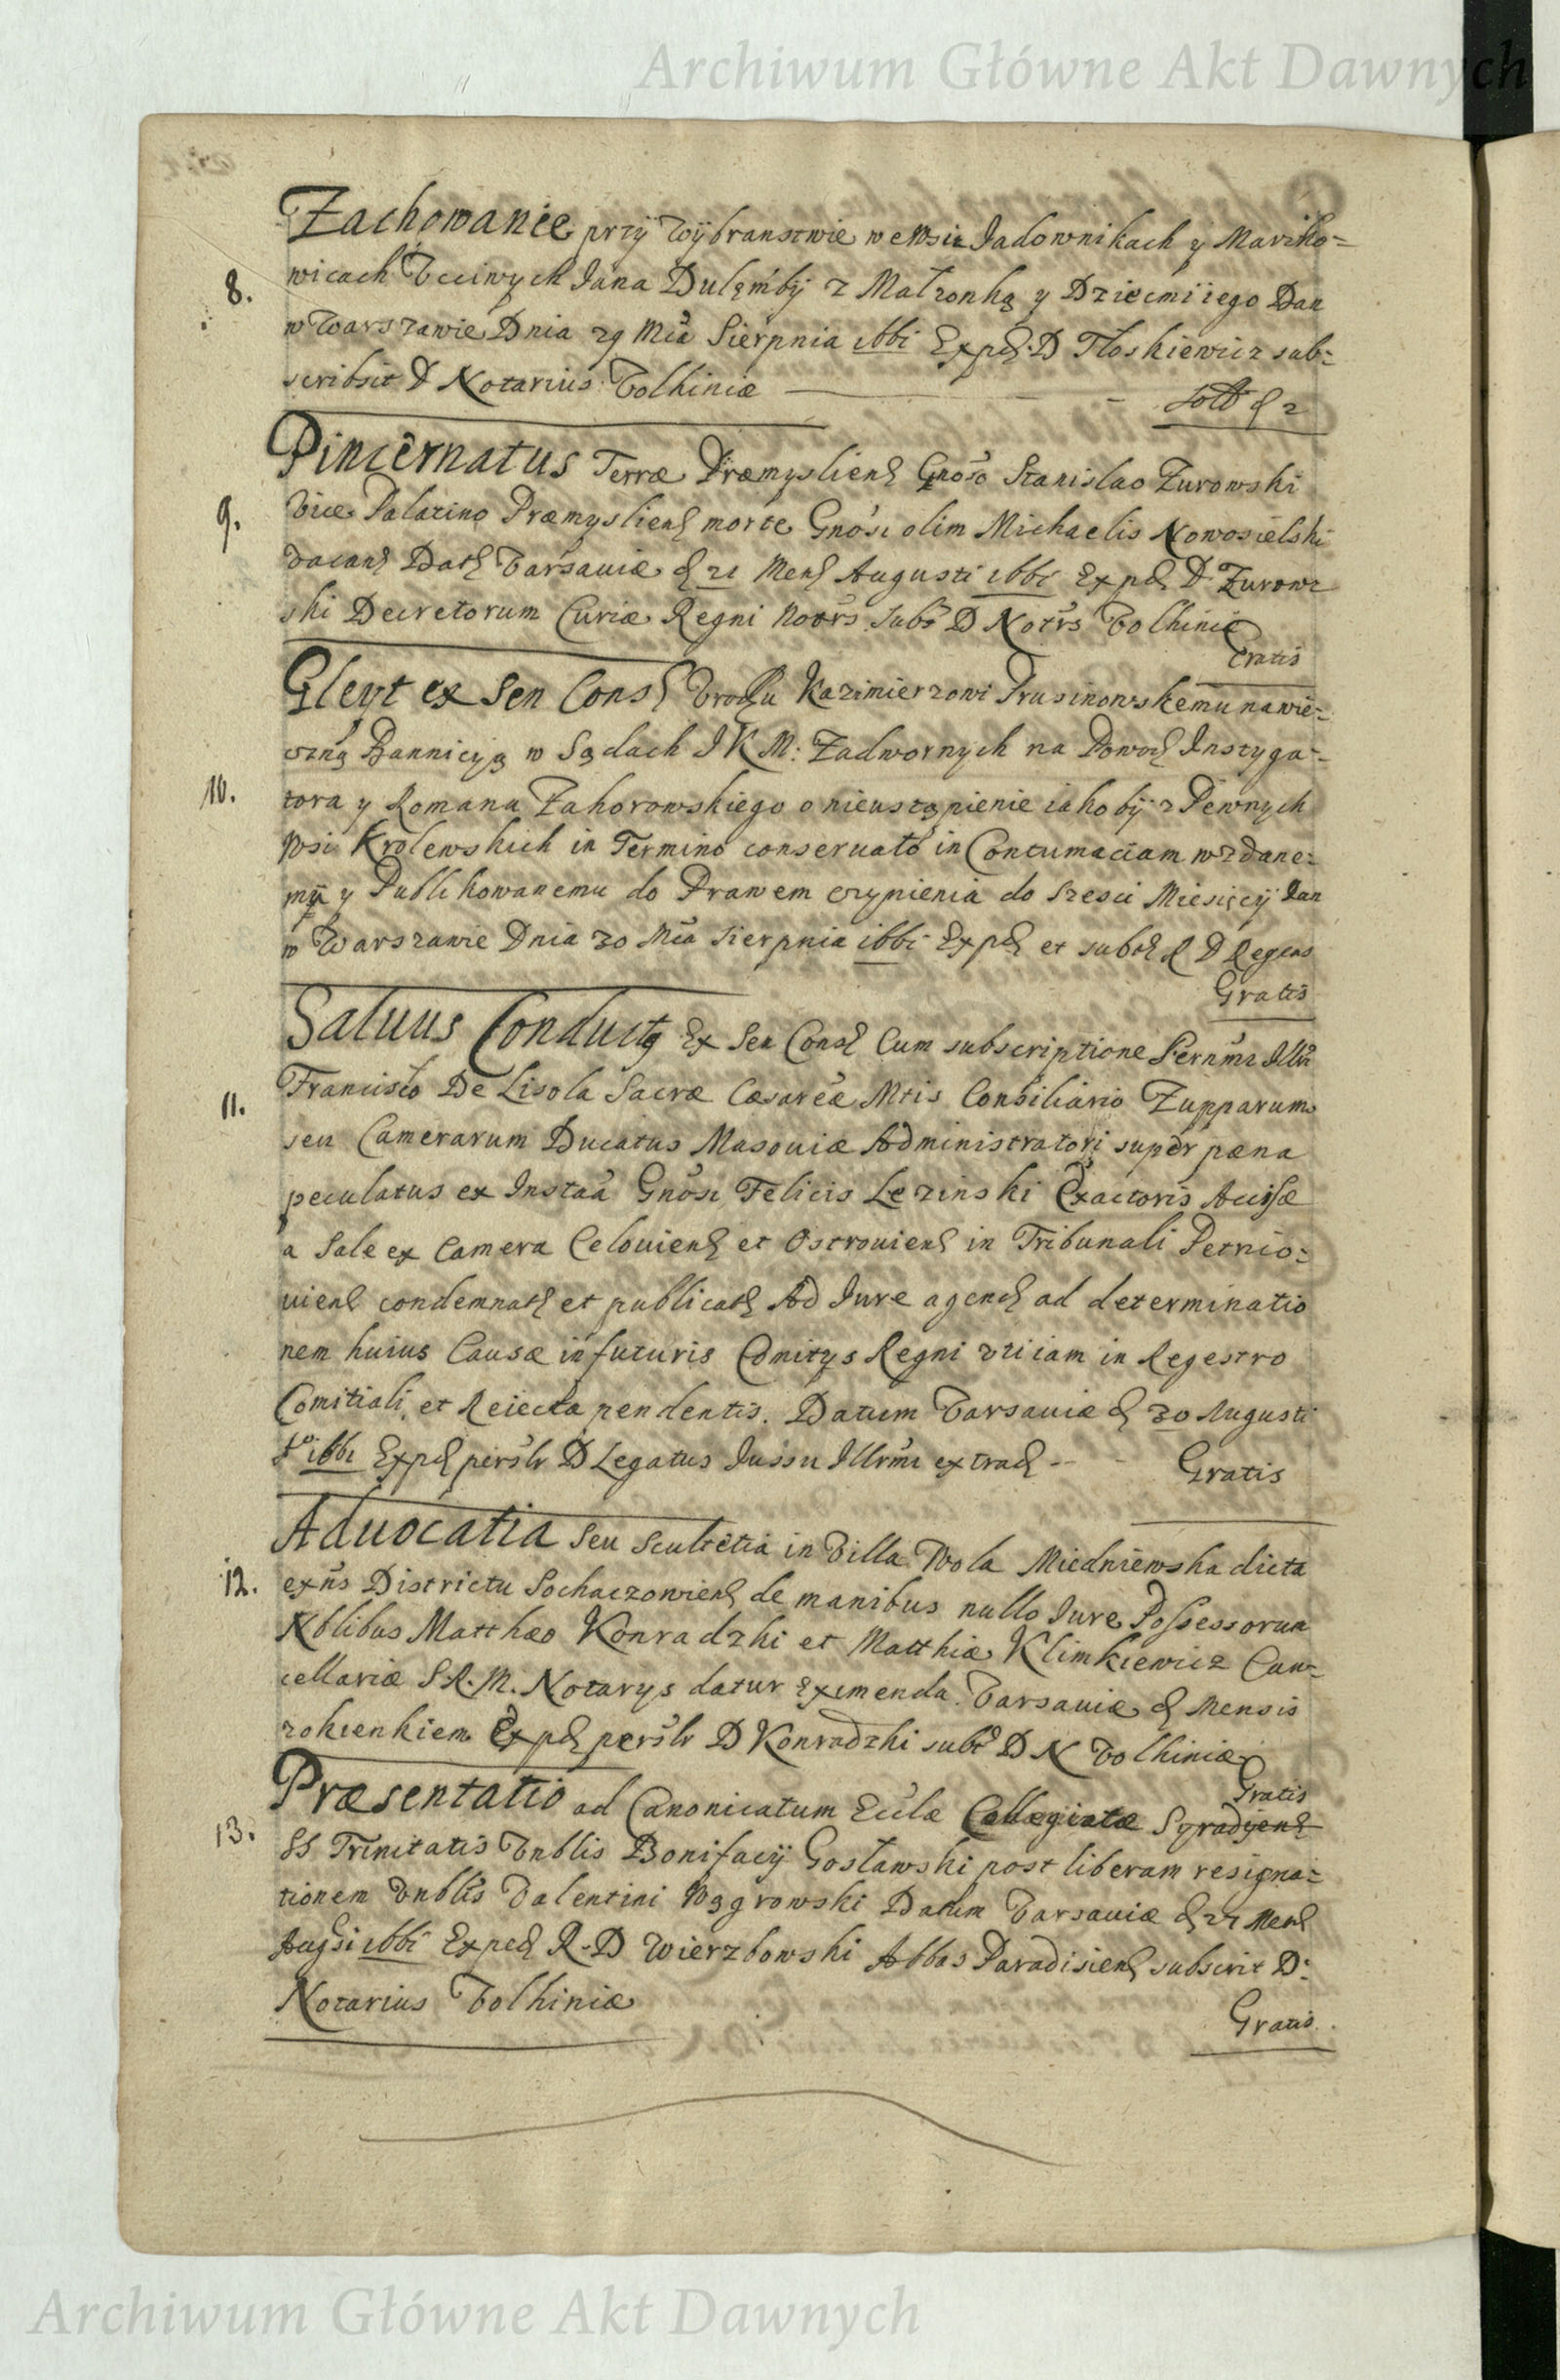 Archiwum Główne Akt Dawnych
Zachowanie przy Wybranstwie we Wsi Jadownikach y Marzko=
8. wicach Vcciwych Jana Dulęmby z Małzonką y Dziecmi iego Dan
w Warszawie Dnia 29 Mca Sierpnia Exped. D Tłoskiewicz sub=
scribsit D Notarius Volhiniæ
Pincernatus Terræ Præmysliens Gnoso Stanislao Zurowski
9. Vice Palatino Præmysliens morte Gnosi olim Michaelis Nowosielski
vacans Dats Varsauiæ d 21 Mens Augusti 1661 Exped D Zurow=
ski Decretorum Curiæ Regni Notrs Subs D Notrs Volhiniæ
Gratis
Gleyt ex Sen Cons Kazimierzowi Prusinowskiemu na wie=
czną Bannicyą w Sądach J K M: Zadwornych na Powod Instyga=
10. tora y Romana Zahorowskiego o nieustąpienie iakoby z Pewnych
Wsi Krolewskich in Termino conseruato in Contumaciam wzdane=
mu y Publikowanemu do Prawem czynienia do szesci Miesięcy Dan
w Warszawie Dnia 30 Mca Sierpnia 1661 Exped et subs R D Regens
Gratis
Saluus Conductus Ex Sen Cons Cum subscriptione Sernmi Illu
Francisco De Lisola Sacræ Cæsareæ Mtis Consiliario Zupparum
11. seu Camerarum Ducatus Masouiæ Administratori super pæna
peculatus ex Instaa Gnosi Felicis Lezinski Exactoris Accisæ
a Sale ex Camera Celouiens et Ostrouiens in Tribunali Petrio=
uiens condemnats et publicats Ad Jure agend ad determinatio
nem huius Causæ in futuris Comitys Regni vti iam in Regestro
Comitiali et Reiecta pendentis. Datum Varsauiæ d 30 Augusti
1661 Exped persolr D Legatus Jussu Illrmi extrad
Gratis
Aduocatia seu Scultetia in Villa Wola Miedniewska dicta
12. exns Districtu Sochaczowiens de manibus nullo Jure Possessorum
Nblibus Matthæo Konradzki et Matthiæ Klimkiewicz Can=
cellariæ S.R.M. Notarys datur Eximenda. Varsauiæ d Mensis
rokienkiem Exped persolr D Konradzki subs D N Volhiniæ
Gratis
Præsentatio ad Canonicatum Eclæ Collegiatæ Syradyens
13. SS Trinitatis Vnblis Bonifacy Gosławski post liberam resigna=
tionem Vnblis Valentini Wągrowski Datum Varsauiæ d 27 Mens
Augsti 1661 Exped R. D Wierzbowski Abbas Paradisiens subscrit D:
Notarius Volhiniæ
Gratis
Archiwum Główne Akt Dawnych